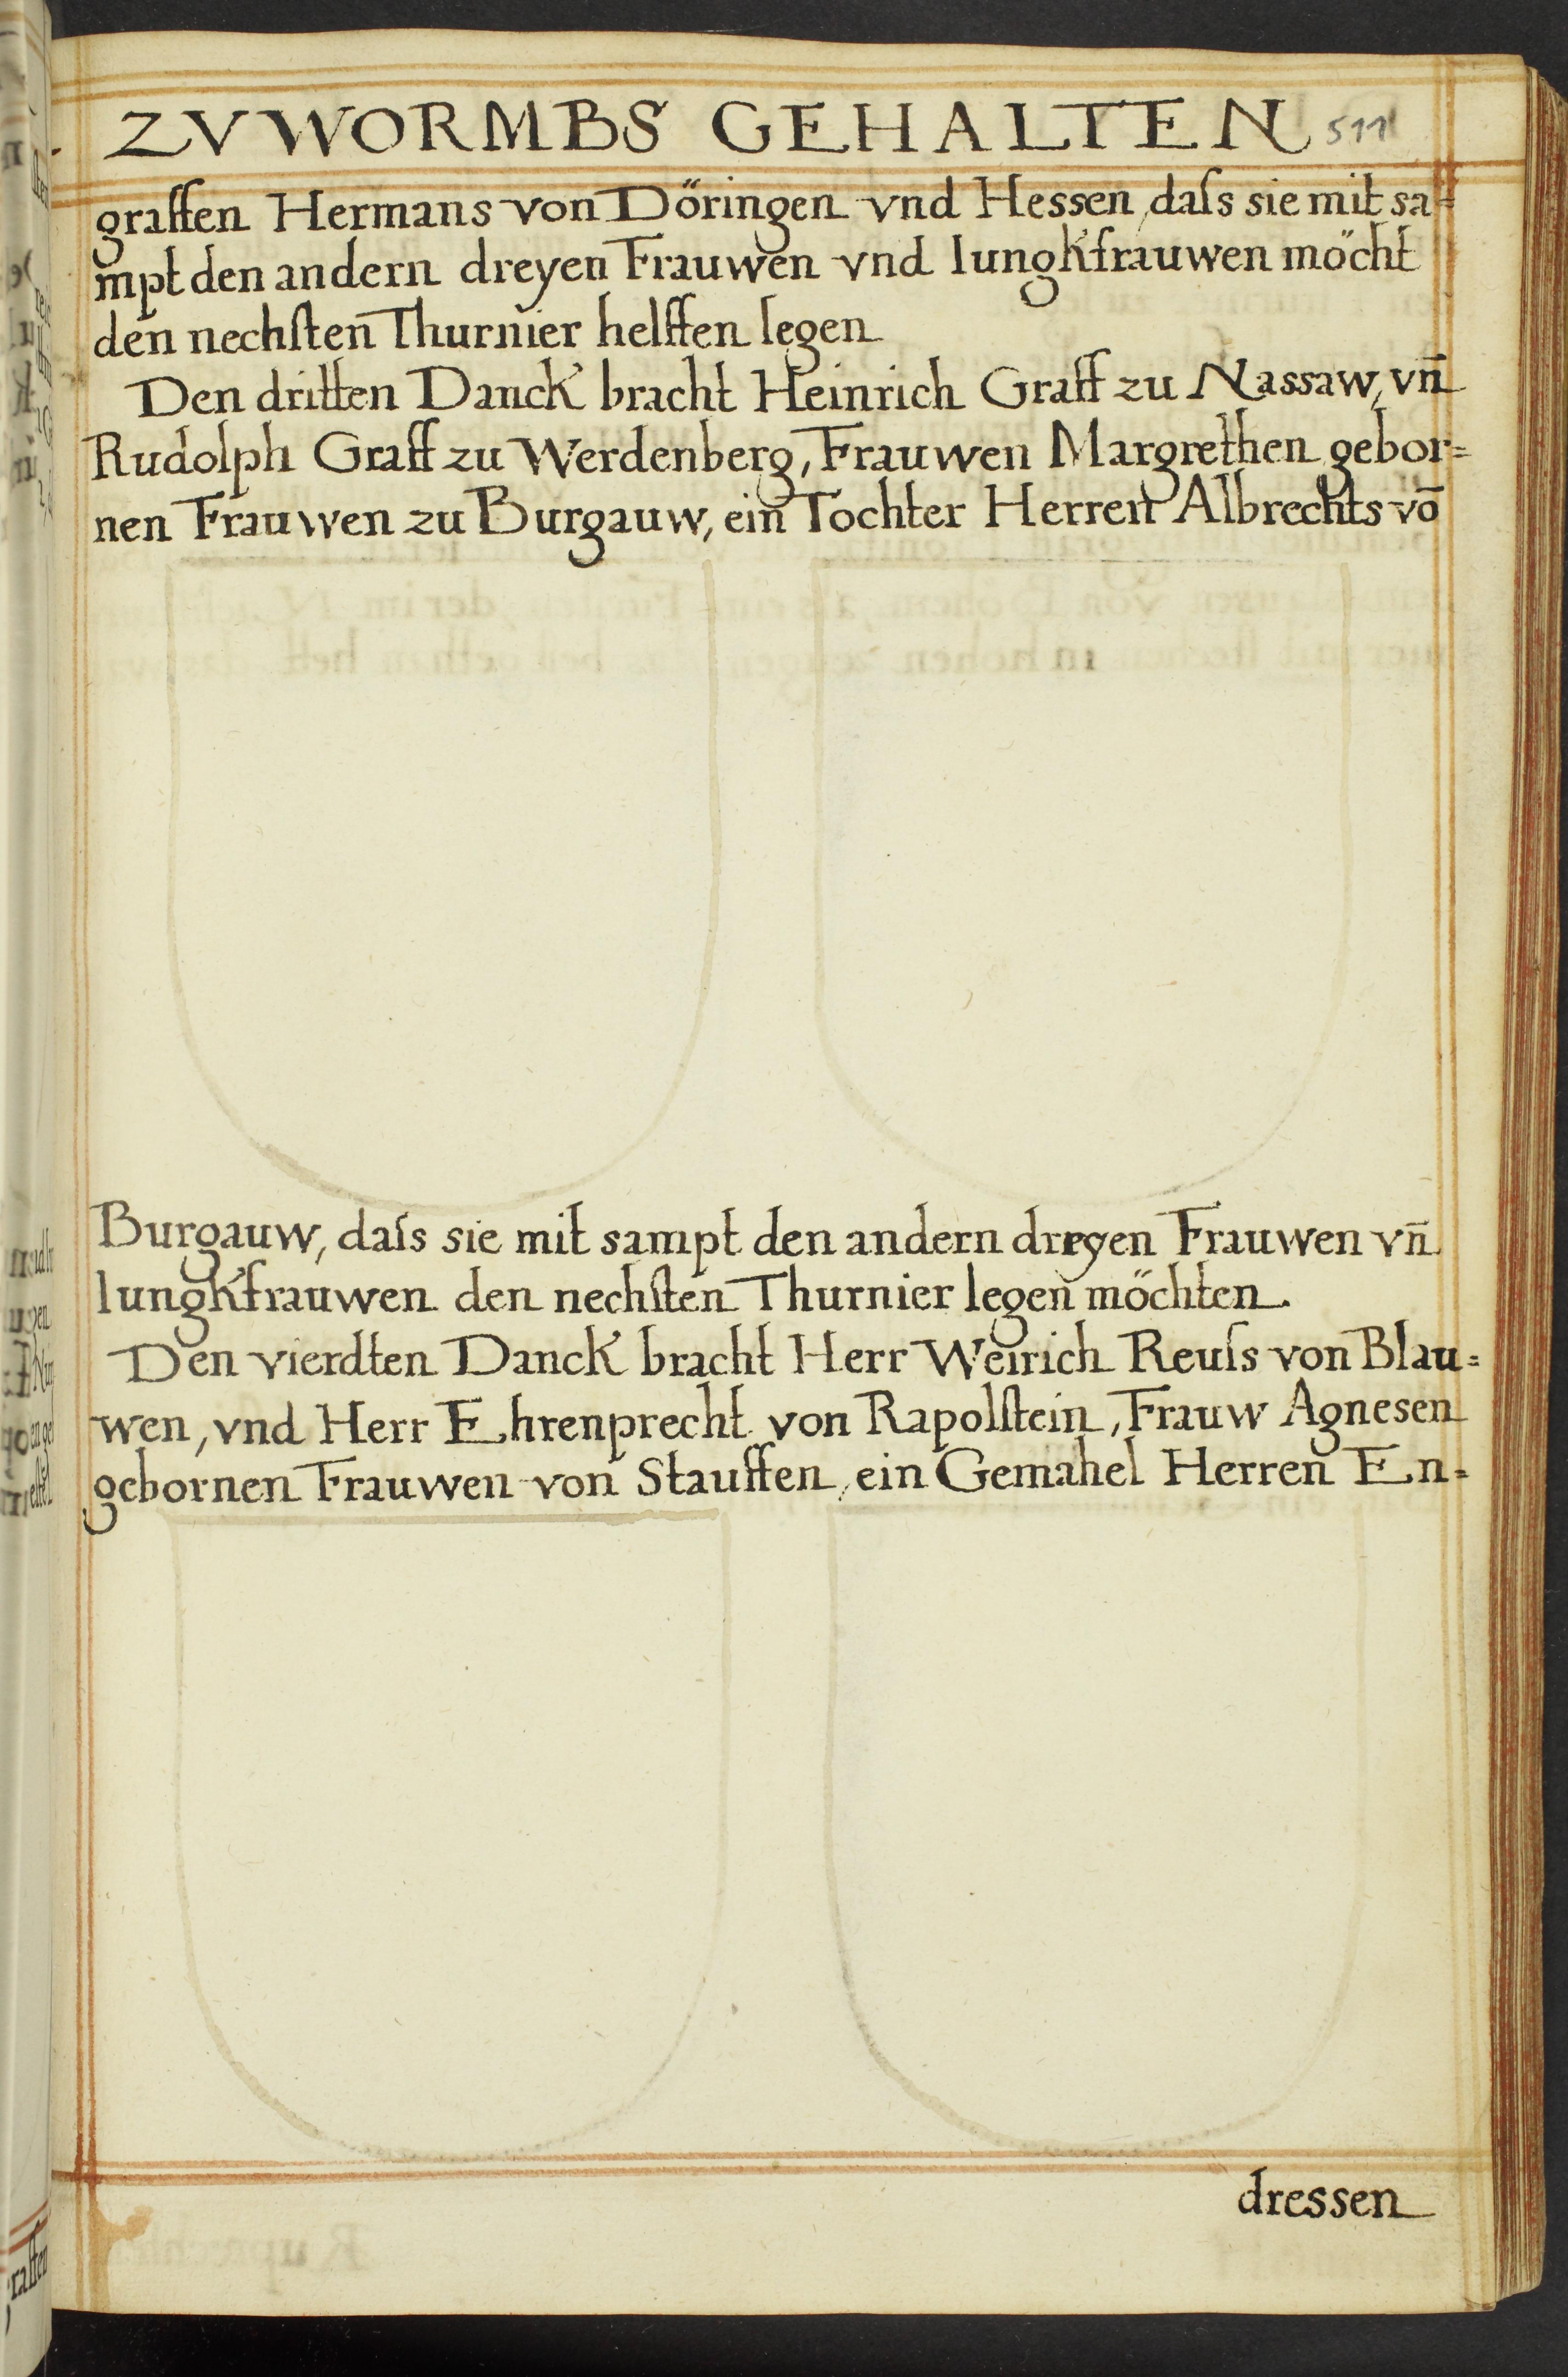 ZV WORMBS GEHALTEN 511
graffen Hermans von Döringen vnd Hessen, daſs sie mit sa=
mpt den andern dreyen Frauwen vnd Iungkfrauwen möcht
den nechſten Thurnier helffen legen
Den dritten Danck bracht Heinrich Graff zu Nassaw, vn̄
Rudolph Graff zu Werdenberg, Frauwen Margrethen gebor=
nen Frauwen zu Burgauw, ein Tochter Herren Albrechts vō
Burgauw, daſs sie mit sampt den andern dreyen Frauwen vn̄
Iungkfrauwen den nechſten Thurnier legen möchten.
Den vierdten Danck bracht Herr Weirich Reuſs von Blau=
wen, vnd Herr Ehrenprecht von Rapolſtein, Frauw Agnesen
gebornen Frauwen von Stauffen, ein Gemahel Herren En=
dressen